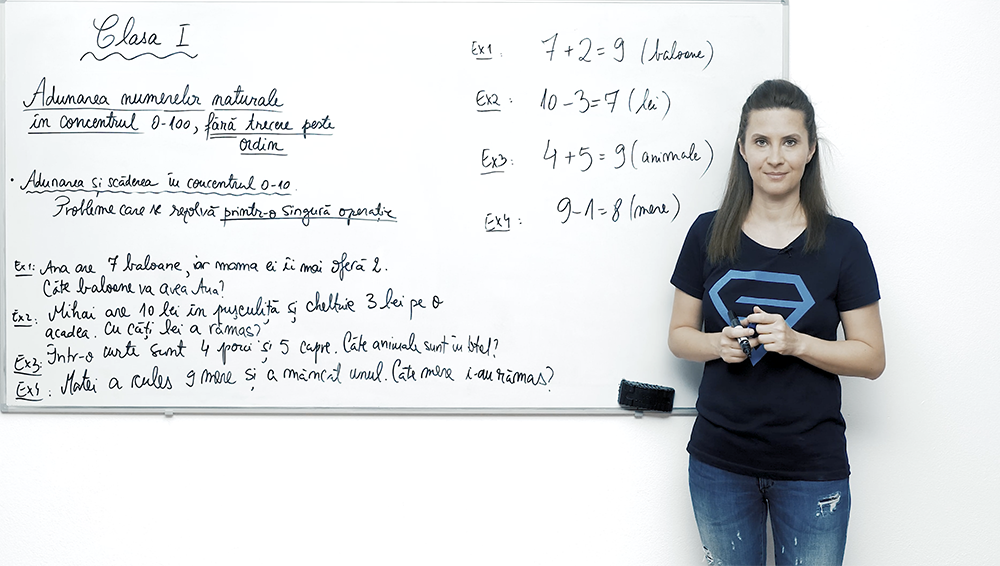 Clasa I
Adunarea numerelor naturale
în concentrul 0-100, fără trecere peste
ordin
• Adunarea și scăderea în concentrul 0-10.
Probleme care se rezolvă printr-o singură operație
Ex1: Ana are 7 baloane, iar mama ei îi mai oferă 2.
Câte baloane va avea Ana?
Ex2: Mihai are 10 lei în pușculiță și cheltuie 3 lei pe o
acadea. Cu câți lei a rămas?
Ex3: Într-o curte sunt 4 porci și 5 capre. Câte animale sunt în total?
Ex4: Matei a cules 9 mere și a mâncat unul. Câte mere i-au rămas?
Ex1: 7+2=9 (baloane)
Ex2: 10-3=7 (lei)
Ex3: 4+5=9 (animale)
Ex4: 9-1=8 (mere)